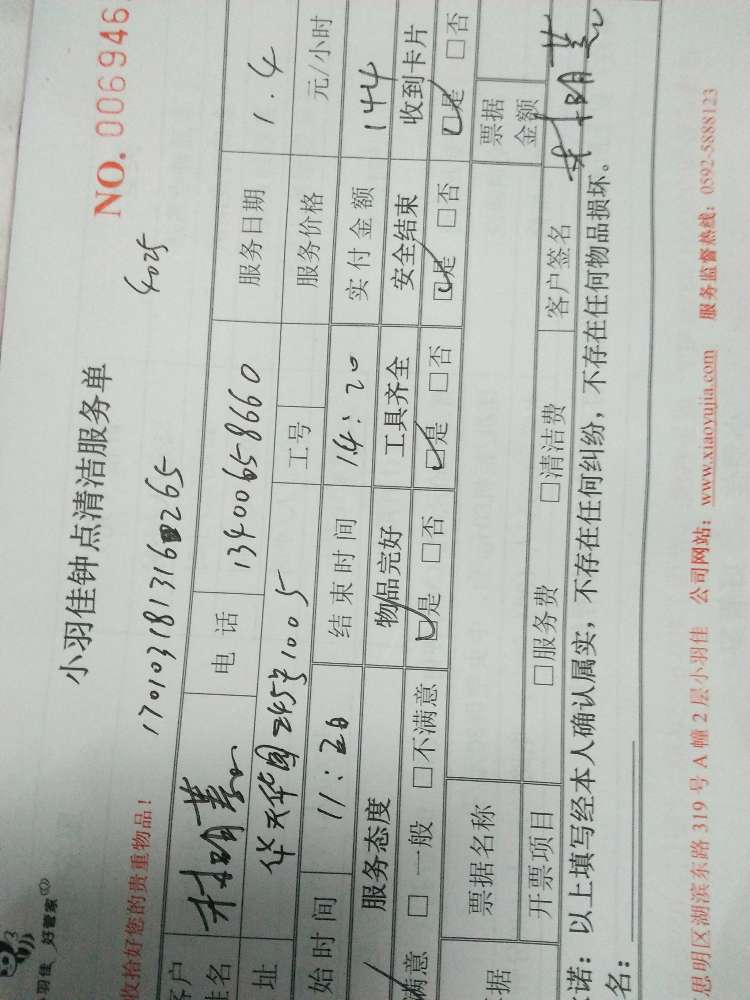 好管家
NO. 006946
小羽佳钟点清洁服务单
收拾好您的贵重物品！
4025
电话 13400658660 服务日期 1.4
址 245号1005 工号 服务价格 元/小时
始时间 11:20 结束时间 14:20 实付金额 144
服务态度 物品完好 工具齐全 安全结束 收到卡片
满意 □ 一般 □不满意 □是 □否 □是 □否 □是 □否 □是 □否
据 票据名称 票据金额
开票项目 □服务费 □清洁费 客户签名
诺：以上填写经本人确认属实，不存在任何纠纷，不存在任何物品损坏。
名：
思明区湖滨东路 319 号 A 幢 2 层小羽佳 公司网站：www.xiaoyujia.com 服务监督热线：0592-5888123